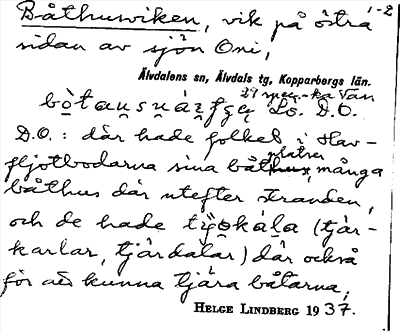 1-2
Båthusviken, vik på östra
sidan av sjön Oni,
Älvdalens sn, Älvdals tg, Kopparbergs län.
D.O.
D.O.: där hade folket i Hav-
fljotbodarna sina båthus, många
platser
båthus där utefter stranden,
och de hade (tjär-
karlar, tjärdalar) där också
för att kunna tjära båtarna.
HELGE LINDBERG 1937.